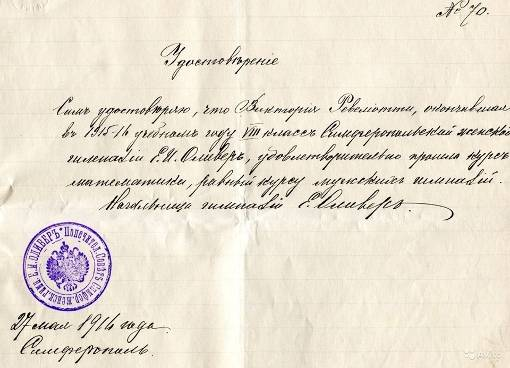 № 70.
Удостовѣреніе
Симъ удостовѣряю, что Виктория Ревелиотти, окончившая
въ 1915-16 учебномъ году VIII классъ Симферопольской женской
гимназіи Е. И. Оливеръ, удовлетворительно прошла курсъ
математики, равный курсу мужскихъ гимназій.
Начальница гимназіи Е. Оливеръ.
Попечител. Совѣтъ Симфер. женск. гимн. Е. И. ОЛИВЕРЪ
27 мая 1916 года
Симферополь.
Avito